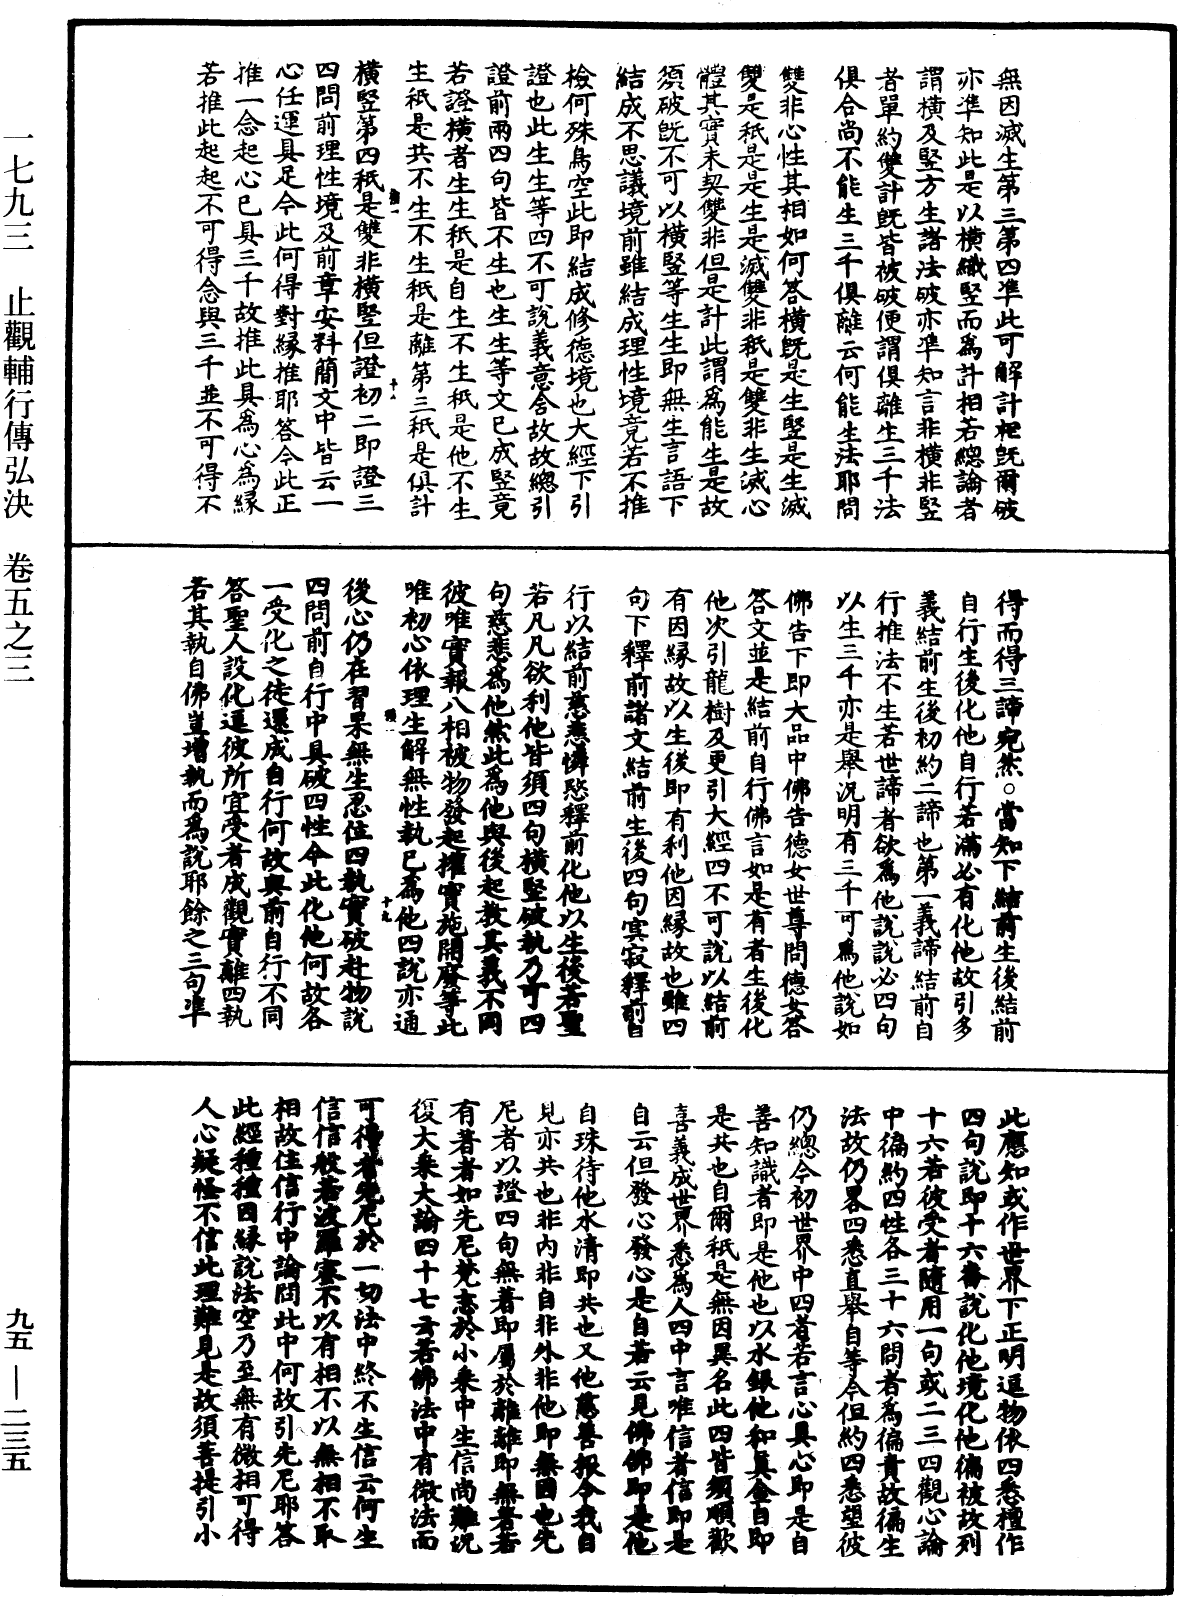 無因滅生第三第四准此可解計相旣爾破
亦准知此是以橫織竪而爲計相若總論者
謂橫及竪方生諸法破亦准知言非橫非竪
者單約雙計旣皆被破便謂俱離生三千法
俱合尚不能生三千俱離云何能生法耶問
雙非心性其相如何答橫旣是生竪是生滅
雙是秖是是生是滅雙非秖是雙非生滅心
體其實未契雙非但是計此謂爲能生是故
須破旣不可以橫竪等生生即無生言語下
結成不思議境前雖結成理性境竟若不推
檢何殊鳥空此即結成修德境也大經下引
證也此生生等四不可說義意含故故總引
證前兩四句皆不生也生生等文已成竪竟
若證橫者生生秖是自生不生秖是他不生
生秖是共不生不生秖是離第三秖是俱計
橫竪第四秖是雙非橫竪但證初二即證三
四問前理性境及前章安料簡文中皆云一
心任運具足今此何得對緣推耶答今此正
推一念起心已具三千故推此具爲心爲緣
若推此起起不可得念與三千並不可得不
得而得三諦宛然○當知下結前生後結前
自行生後化他自行若滿必有化他故引多
義結前生後初約二諦也第一義諦結前自
行推法不生若世諦者欲爲他說說必四句
以生三千亦是舉況明有三千可爲他說如
佛告下即大品中佛告德女世尊問德女答
答文並是結前自行佛言如是有者生後化
他次引龍樹及更引大經四不可說以結前
有因緣故以生後即有利他因緣故也雖四
句下釋前諸文結前生後四句冥寂釋前自
行以結前慈悲憐愍釋前化他以生後若聖
若凡凡欲利他皆須四句橫竪破執乃可四
句慈悲爲他然此爲他與後起教其義不同
彼唯實報八相被物發起權實施開廢等此
唯初心依理生解無性執已爲他四說亦通
後心仍在習果無生忍位四執實破赴物說
四問前自行中具破四性今此化他何故各
一受化之徒還成自行何故與前自行不同
答聖人設化逗彼所宜受者成觀實離四執
若其執自佛豈增執而爲說耶餘之三句準
此應知或作世界下正明逗物依四悉檀作
四句說即十六番說化他境化他徧被故列
十六若彼受者隨用一句或二三四觀心論
中徧約四性各三十六問者爲徧責故徧生
法故仍畧四悉直舉自等今但約四悉望彼
仍總今初世界中四者若言心具心即是自
善知識者即是他也以水銀他和眞金自即
是共也自爾秖是無因異名此四皆須順歡
喜義成世界悉爲人四中言唯信者信即是
自云但發心發心是自若云見佛佛即是他
自珠待他水清即共也又他慈善根令我自
見亦共也非內非自非外非他即無因也先
尼者以證四句無著即屬於離離即無著若
有著者如先尼梵志於小乘中生信尚難況
復大乘大論四十七云若佛法中有微法而
可得者先尼於一切法中終不生信云何生
信信般若波羅蜜不以有相不以無相不取
相故住信行中論問此中何故引先尼耶答
此經種種因緣說法空乃至無有微相可得
人心疑怪不信此理難見是故須菩提引小
一七九三　止觀輔行傳弘決　卷五之三
九五—二三五